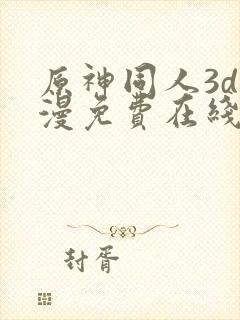 原神同人3d
漫免費在綫
封胥